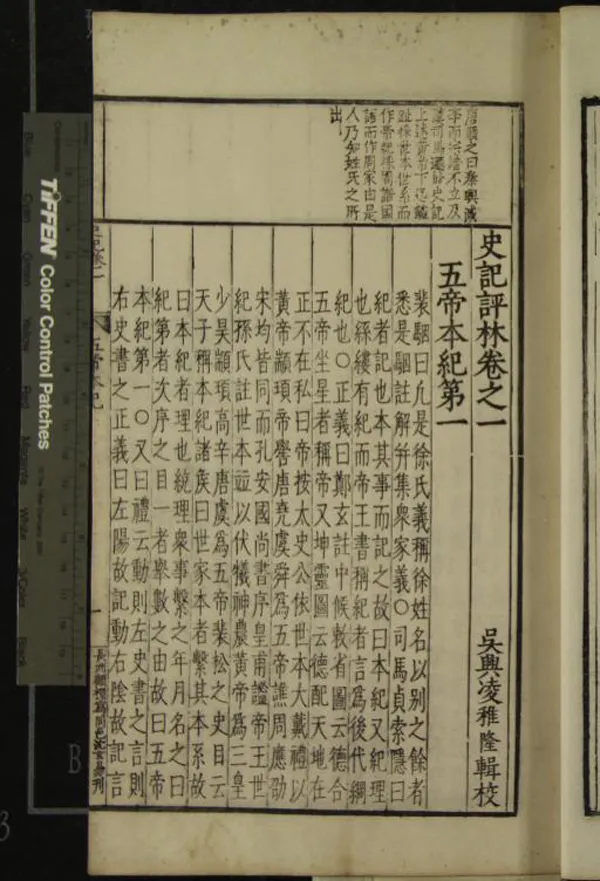 唐順之曰秦興滅
而宗法不立及
漢司馬遷始史記
上述黃帝下迄麟
趾採世本世系而
作帝紀採周譜國
語而作周家由是
人乃知姓氏之所
出
史記評林卷之一
吳興凌稚隆輯校
五帝本紀第一
裴駰曰凡是徐氏義稱徐姓名以別之餘者
悉是駰註解幷集衆家義○司馬貞索隱曰
紀者記也本其事而記之故曰本紀又紀理
也絲縷有紀而帝王書稱紀者言爲後代綱
紀也○正義曰鄭玄註中候敕省圖云德合
五帝坐星者稱帝又坤靈圖云德配天地在
正不在私曰帝按太史公依世本大戴禮以
黃帝顓頊帝嚳唐堯虞舜爲五帝譙周應劭
宋均皆同而孔安國尚書序皇甫謐帝王世
紀孫氏註世本竝以伏犧神農黃帝爲三皇
少昊顓頊高辛唐虞爲五帝裴松之史目云
天子稱本紀諸侯曰世家本者繫其本系故
曰本紀者理也統理衆事繫之年月名之曰
紀第者次序之目一者舉數之由故曰五帝
本紀第一○又曰禮云動則左史書之言則
右史書之正義曰左陽故記動右陰故記言
五帝本紀
一
TIFFEN Color Control Patches
B
3